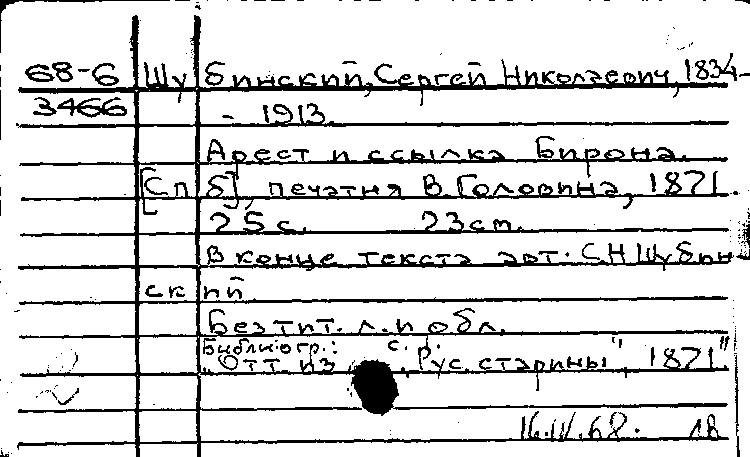 68-6 Шубинский, Сергей Николаевич, 1834-
3466 - 1913.
Арест и ссылка Бирона.
[Спб], печатня В. Головина, 1871.
25 с. 23 cm.
В конце текста авт. С.Н Шубин-
ский.
Без тит. л. и обл.
Библиогр.: с. р.
"Отт. из "Рус. старины", 1871"
16.IV.68. 1В